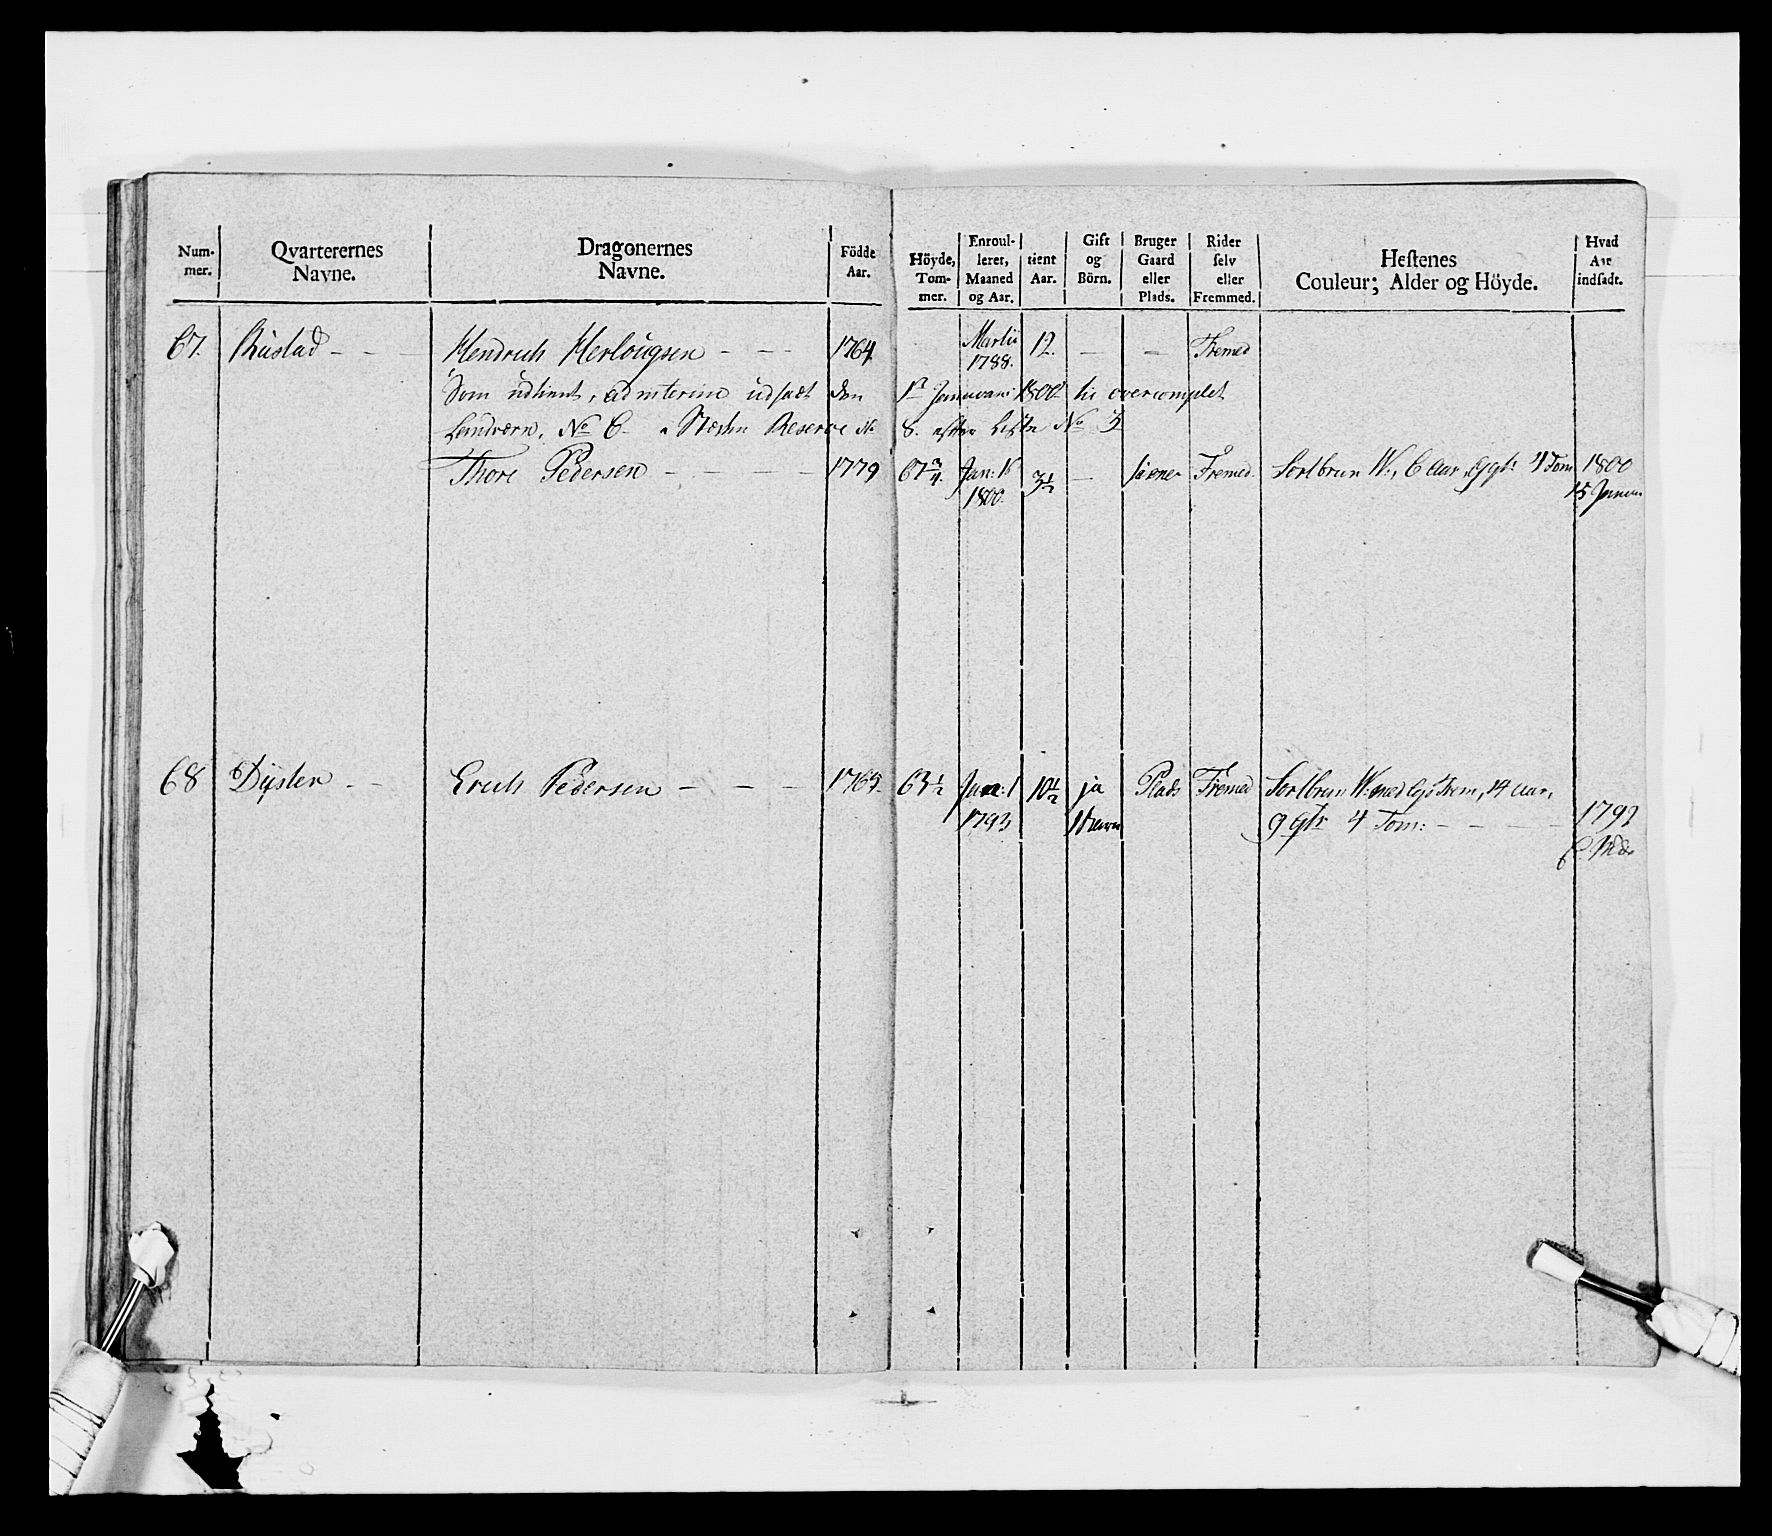 Num-
mer.
Qvarterernes
Navne.
Dragonernes
Navne.
Födde
Aar.
Höyde,
Tom-
mer.
Enroul-
leret,
Maaned
og Aar.
tient
Aar.
Gift
og
Börn.
Bruger
Gaard
eller
Plads.
Rider
selv
eller
Fremmed.
Hestenes
Couleur; Alder og Höyde.
Hvad
Aar
indsadt.
67. Rustad - - - Hendrich Herlougsen - - - 1764 Martii 12. - - Fremed
1788.
Som udtient, ad interim udsadt den 1ste Januari 1800 til overcomplet
Landværn, No 6. Reserve No 8. efter Liste No 3
Thore Pedersen - - - - 1779 67 3/4. Jan: 15 3 1/2 - Fremed. Sortbrun W., 6 Aar, 9 qtr: 4 Tom 1800
1800. 15 Januar
68 Dysten - - Erich Pedersen - - - - 1765. 63 1/2 Jan: 1 10 1/2 ja Plads Fremed Sortbrun W. med lys Trem, 14 aar,
1793 9 qtr 4 Tom: - - - - 1792